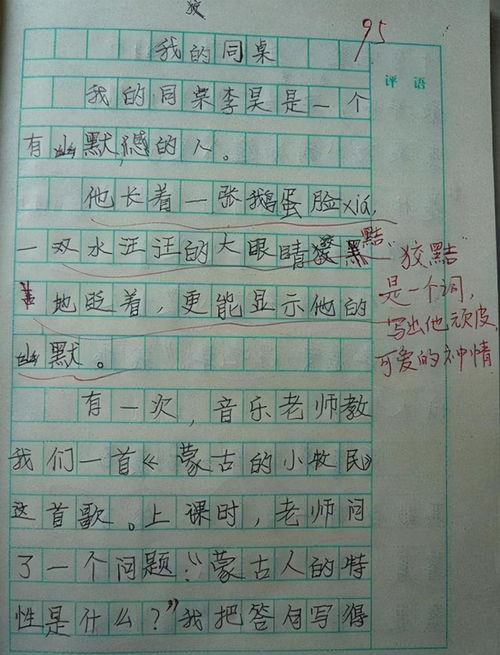 95
我的同桌
评语
我的同桌李昊是一个
有幽默感的人。
他长着一张鹅蛋脸xià,
一双水汪汪的大眼睛狡黠
地眨着,更能显示他的
幽默。
狡黠
是一个词,
写出他顽皮
可爱的神情
有一次,音乐老师教
我们一首《蒙古的小牧民》
这首歌。上课时,老师问
了一个问题:“蒙古人的特
性是什么?”我把答句写得